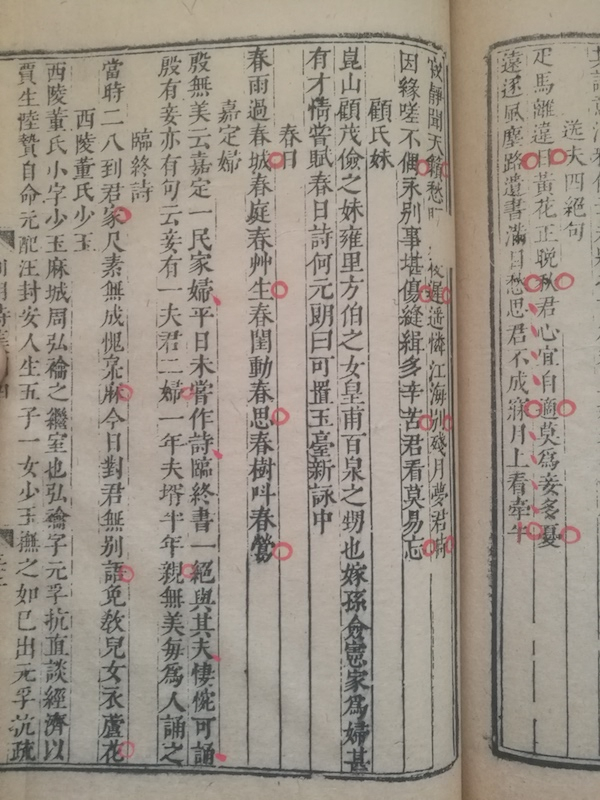 送夫四絕句
疋馬離違日黃花正晚秋君心宜自適莫為妾多憂
遠逐風塵路遺書滿目愁思君不成寐月上看牽牛
寂靜聞天籟愁
遲遲憐江海別殘月夢君
因緣嗟不偶永别事堪傷縫緝多辛苦君看莫易忘
顧氏妹
崑山顧茂儉之妹雍里方伯之女皇甫百泉之甥也嫁孫僉憲家為婦甚
有才情嘗賦春日詩何元朗曰可置玉臺新詠中
春日
春雨過春城春庭春艸生春閨動春思春樹叫春鶯
嘉定婦
殷無美云嘉定一民家婦平日未嘗作詩臨終書一絕與其夫悽惋可誦
殷有妾亦有句云妾有一夫君二婦一年夫壻半年親無美每為人誦之
臨終詩
當時二八到君家尺素無成愧枲麻今日對君無别語免教兒女衣蘆花
西陵董氏少玉
西陵董氏小字少玉麻城周弘禴之繼室也弘禴字元孚抗直談經濟以
賈生陸贄自命元配汪封安人生五子一女少玉撫之如已出元孚抗疏